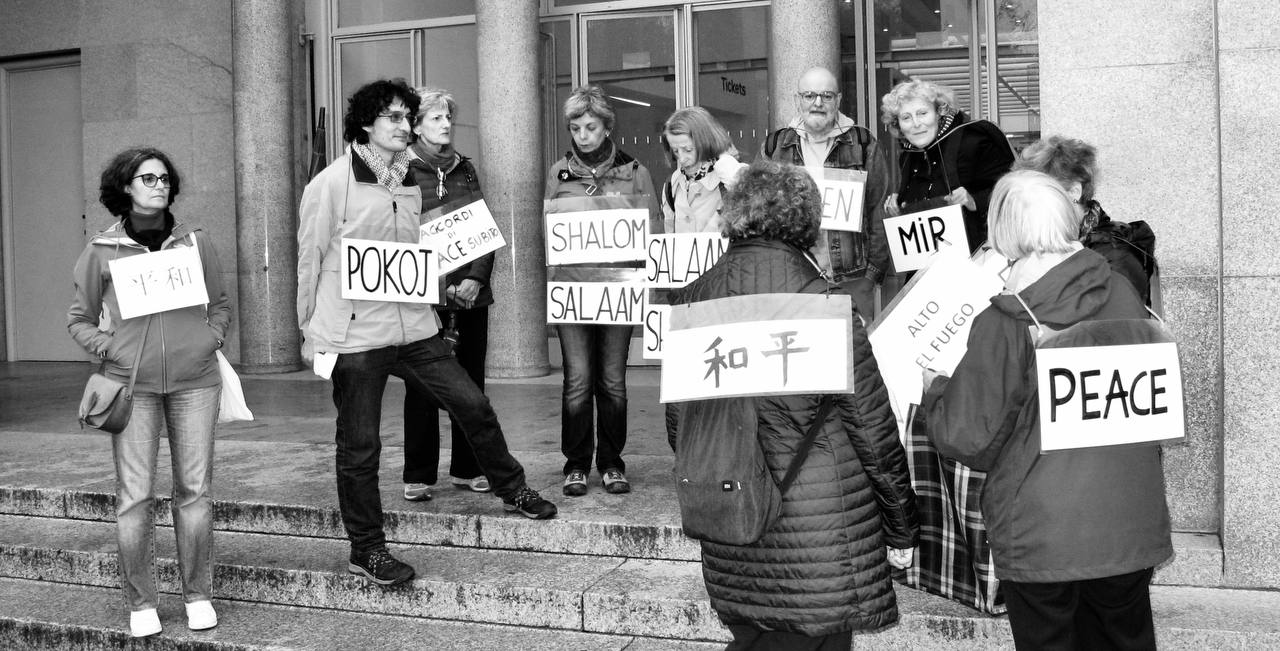 Tickets
平和
POKOJ
ACCORDI
DI
ACE SUBITO
SHALOM
SALAAM
SALAAM
EN
MİR
和平
ALTO
EL FUEGO
PEACE